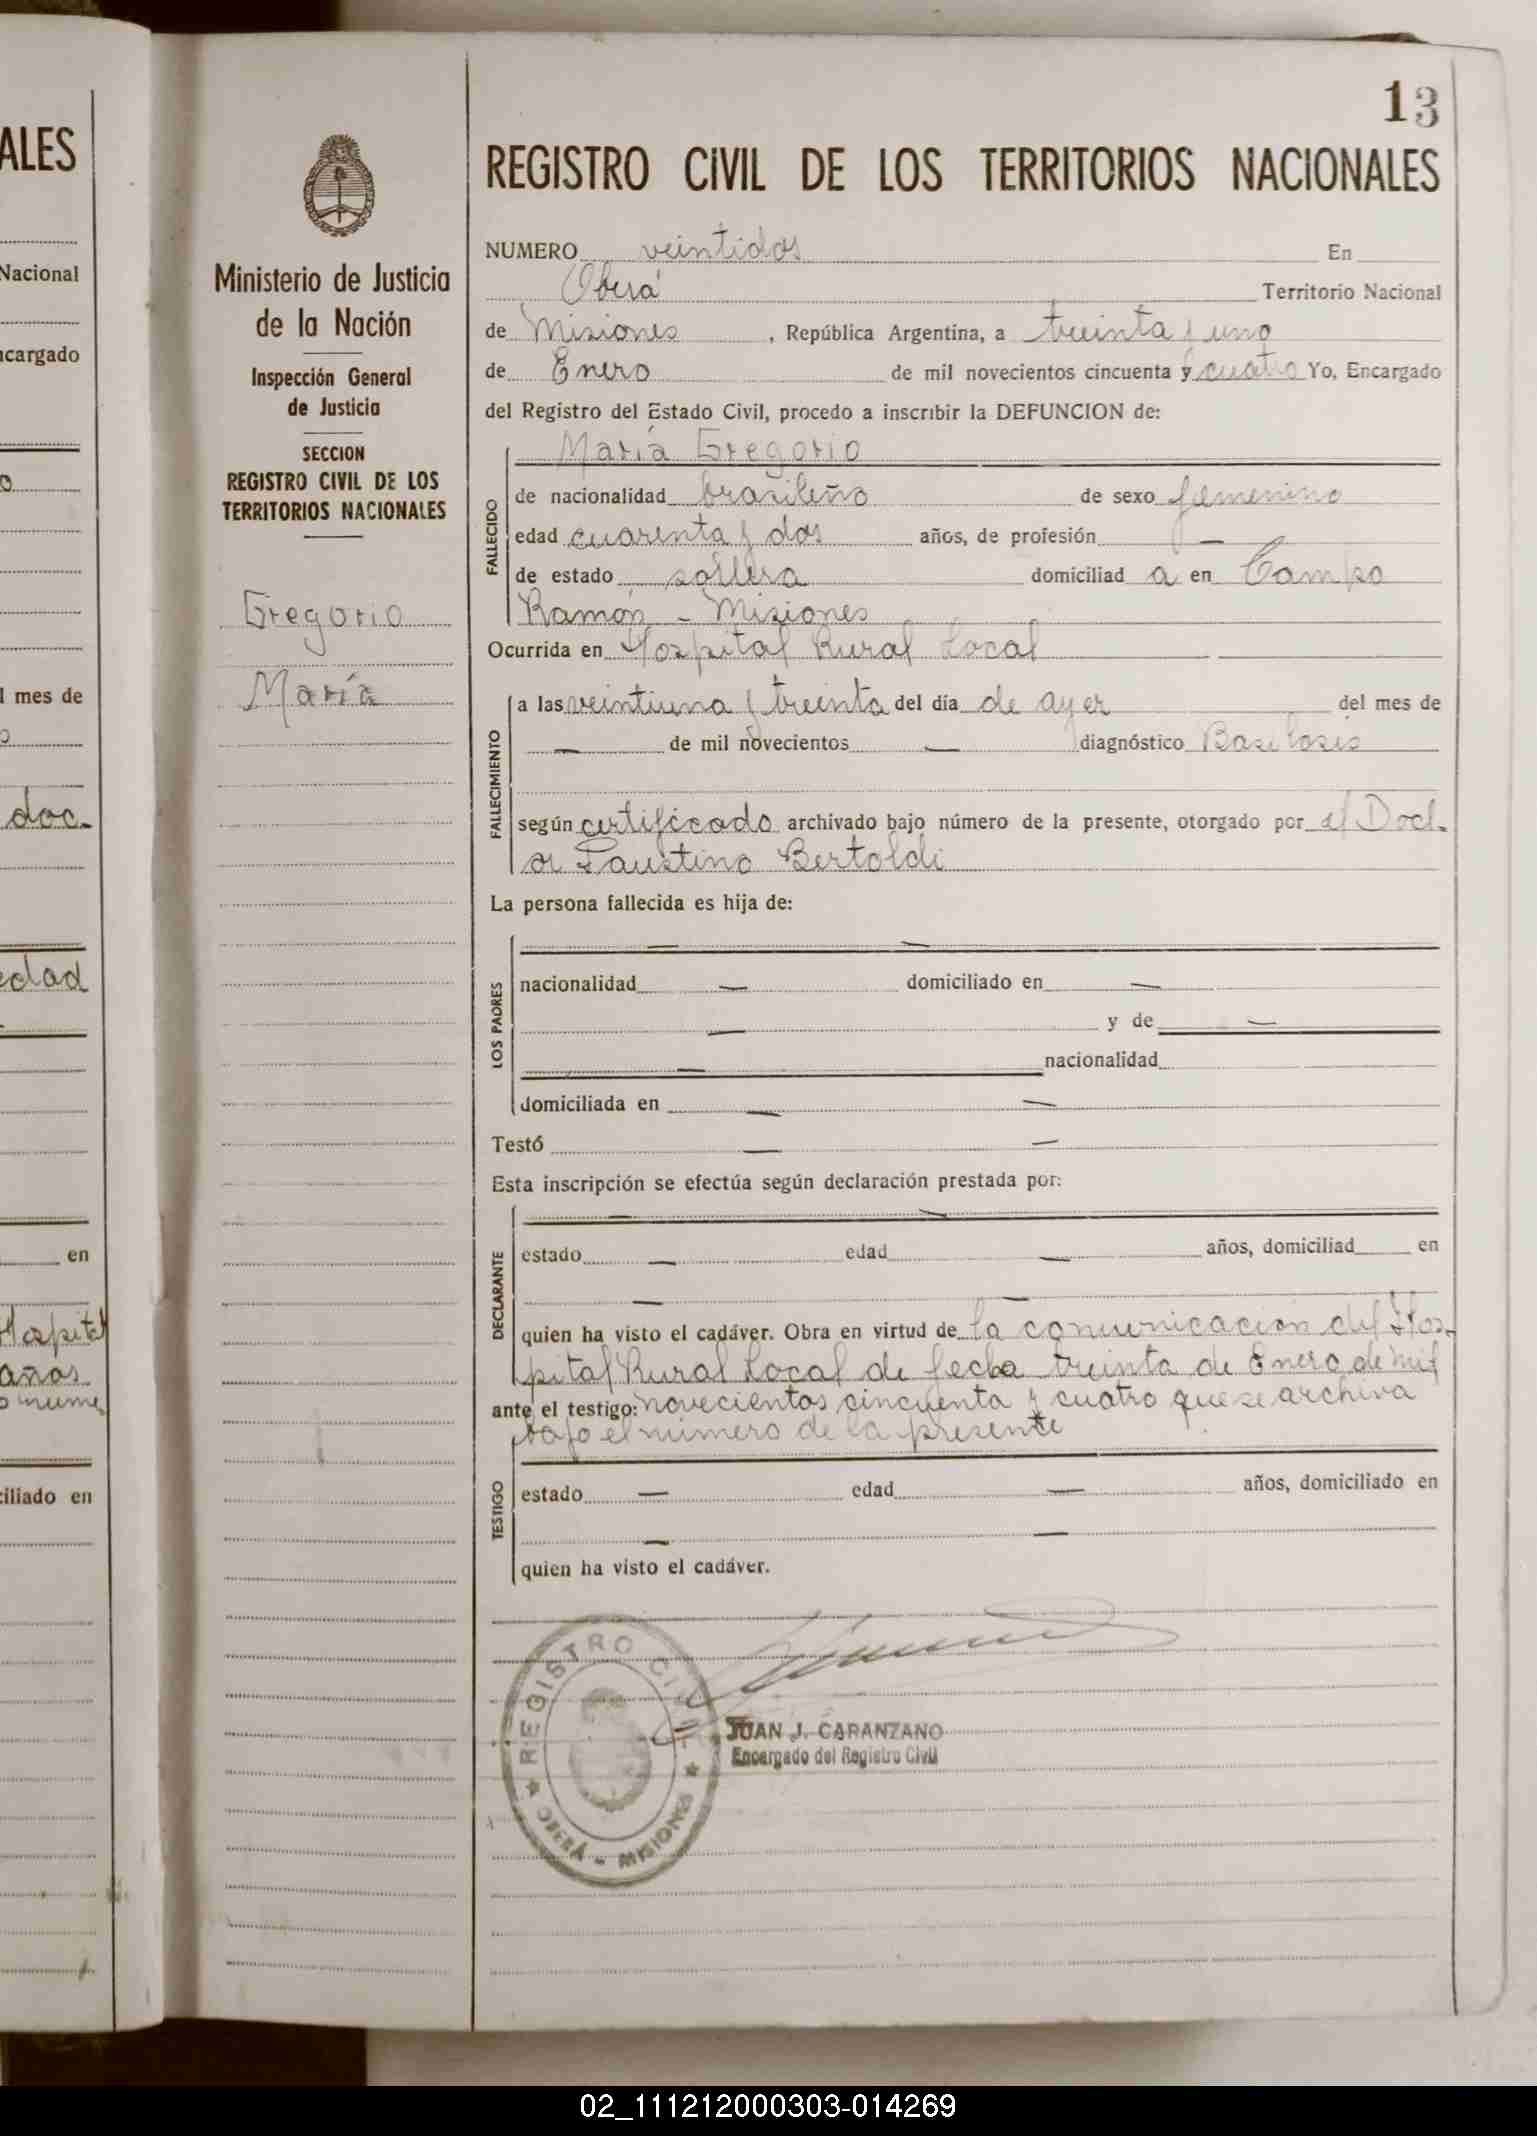 13
REGISTRO CIVIL DE LOS TERRITORIOS NACIONALES
Ministerio de Justicia
de la Nación
Inspección General
de Justicia
SECCION
REGISTRO CIVIL DE LOS
TERRITORIOS NACIONALES
Gregorio
María
NUMERO veintidos En
Oberá Territorio Nacional
de Misiones , República Argentina, a treinta y uno
de Enero de mil novecientos cincuenta y cuatro Yo, Encargado
del Registro del Estado Civil, procedo a inscribir la DEFUNCION de:
María Gregorio
FALLECIDO
de nacionalidad brasileño de sexo femenino
edad cuarenta y dos años, de profesión —
de estado soltera domiciliad a en Campo
Ramón - Misiones
Ocurrida en Hospital Rural Local
FALLECIMIENTO
a las veintiuna y treinta del día de ayer del mes de
— de mil novecientos — diagnóstico Basilosis
según certificado archivado bajo número de la presente, otorgado por el Doct-
or Faustino Bertoldi
La persona fallecida es hija de:
LOS PADRES
— —
nacionalidad — domiciliado en —
— y de —
— nacionalidad
domiciliada en — —
Testó — —
Esta inscripción se efectúa según declaración prestada por:
DECLARANTE
— —
estado — edad — años, domiciliad en
— —
quien ha visto el cadáver. Obra en virtud de la comunicación del Hos-
pital Rural Local de fecha treinta de Enero de mil
ante el testigo: novecientos cincuenta y cuatro que se archiva
bajo el número de la presente
TESTIGO
estado — edad — años, domiciliado en
— —
quien ha visto el cadáver.
REGISTRO CIVIL
OBERÁ - MISIONES
JUAN J. CARANZANO
Encargado del Registro Civil
ALES
Nacional
ncargado
l mes de
doc-
edad
en
Hospital
años
nume
ciliado en
02_111212000303-014269